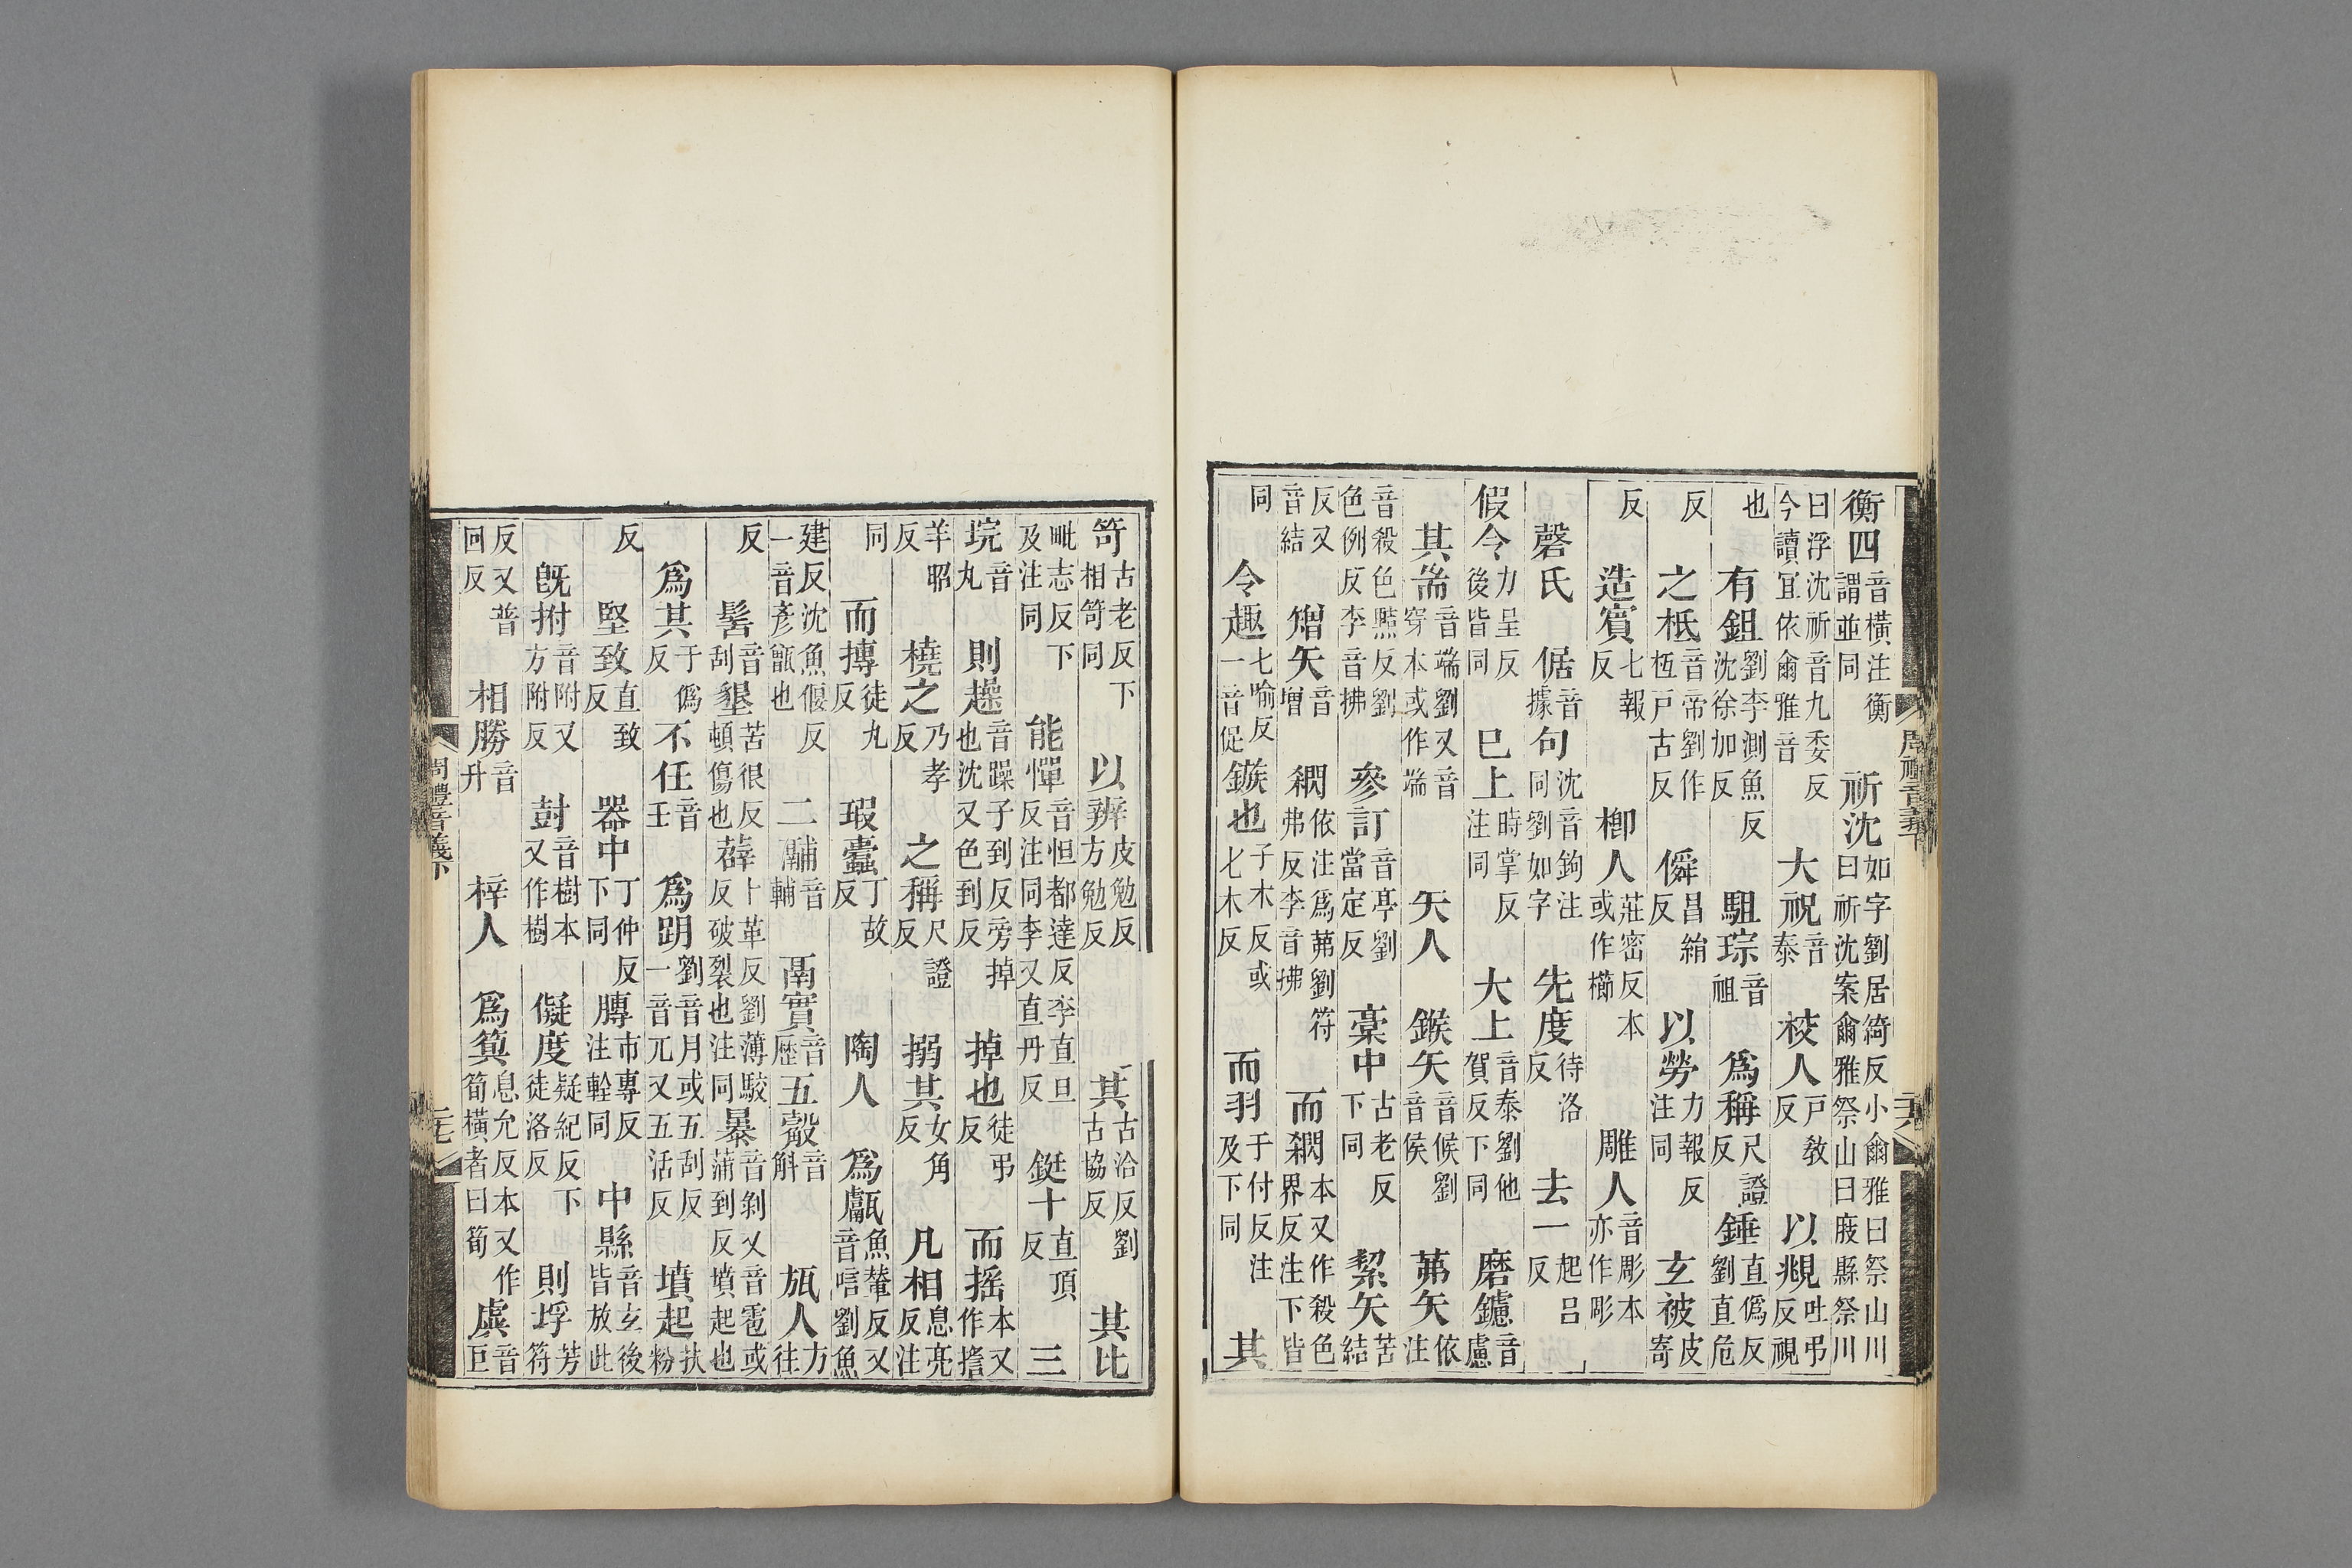 衡四音橫注衡謂並同 祈沈如字劉居綺反小爾雅曰祭山川曰祈沈案爾雅祭山曰庪縣祭川
曰浮沈祈音九委反今讀宜依爾雅音 大祝音泰 校人戶教反 以兆吐弔反視
也 有鉏劉李測魚反沈徐加反 駔琮音祖 爲稱尺證反 錘直僞反劉直危
反 之柢音帝劉作枑戶古反 僢昌絹反 以勞力報反注同 玄被皮寄
反 造賓七報反 楖人莊密反本或作櫛 雕人音彫本亦作彫
磬氏 倨音據 句沈音鉤注同劉如字 先度待洛反 去一起呂反
假令力呈反後皆同 已上時掌反注同 大上音泰劉他賀反下同 磨鑢音慮
其耑音端劉又音穿本或作端 矢人 鍭矢音候劉音侯 茀矢依注
音殺色黠反劉色例反李音拂 參訂音亭劉當定反 稾中古老反下同 絜矢苦結
反又音結 矰矢音增 閷依注爲茀劉符弗反李音拂 而閷本又作殺色界反注下皆
同 令趣七喻反一音促 鏃也子木反或七木反 而羽于付反注及下同 其
周禮音義下 二十六
笴古老反下相笴同 以辨皮勉反方勉反 其古洽反劉古協反 其比
毗志反下及注同 能憚音怛都達反李直旦反注同李又直丹反 鋌十直頂反 三
垸音丸 則趮音躁子到反旁掉也沈又色到反 掉也徒弔反 而搖本又作㨱
羊昭反 橈之乃孝反 之稱尺證反 搦其女角反 凡相息亮反注
同 而摶徒丸反 瑕蠹丁故反 陶人 爲甗魚輦反又音唁劉魚
建反沈魚偃反一音彥甑也 二鬴音輔 鬲實音歷 五觳音斛 瓬人方往
反 髺音刮 墾苦很反頓傷也 薜卜革反劉薄駮反破裂也注同 暴音剝又音雹或蒲到反墳起也
爲其于僞反 不任音壬 爲明劉音月或五刮反一音兀又五活反 墳起扶粉
反 堅致直致反 器中丁仲反下同 膞市專反注輇同 中縣音玄後皆放此
旣拊音附又方附反 尌音樹本又作樹 儗度疑紀反下徒洛反 則垺芳符
反又普回反 相勝音升 梓人 爲簨息允反本又作筍橫者曰筍 虡音巨
周禮音義下 二十七